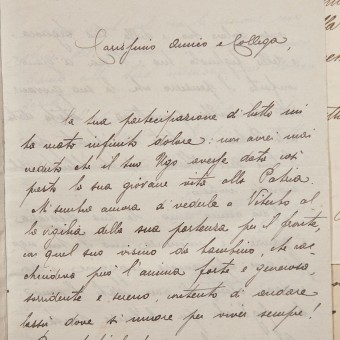 Carissimo Amico e Collega,
la sua partecipazione di lutto mi
ha recato infinito dolore: non avrei mai
creduto che il suo Ugo avesse dato così
presto la sua giovane vita alla Patria.
Mi sembra ancora di vederlo a Viterbo al
la vigilia della sua partenza pe il fronte,
in quel suo visino da bambino, che rac-
chiudeva però l'anima forte e generosa,
sorridente e sereno, contento di andare
lassù dove si muore per viver sempre!